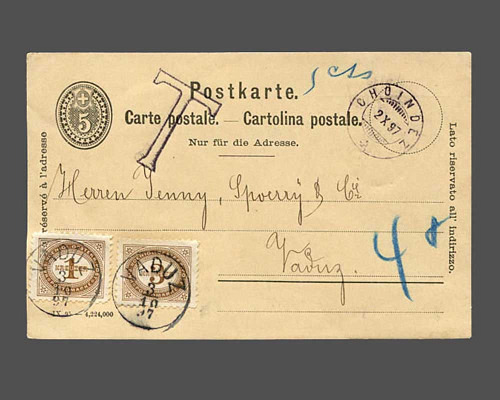 5 cts
Postkarte.
5
T
Carte postale. — Cartolina postale.
Nur für die Adresse.
2 X 97
réservé à l'adresse
Lato riservato all' indirizzo.
Herren Jenny, Spoerry & Cie
Vaduz.
4
1
VADUZ
3
10
97
VADUZ
3
10
97
IX. 97 — 4,224,000